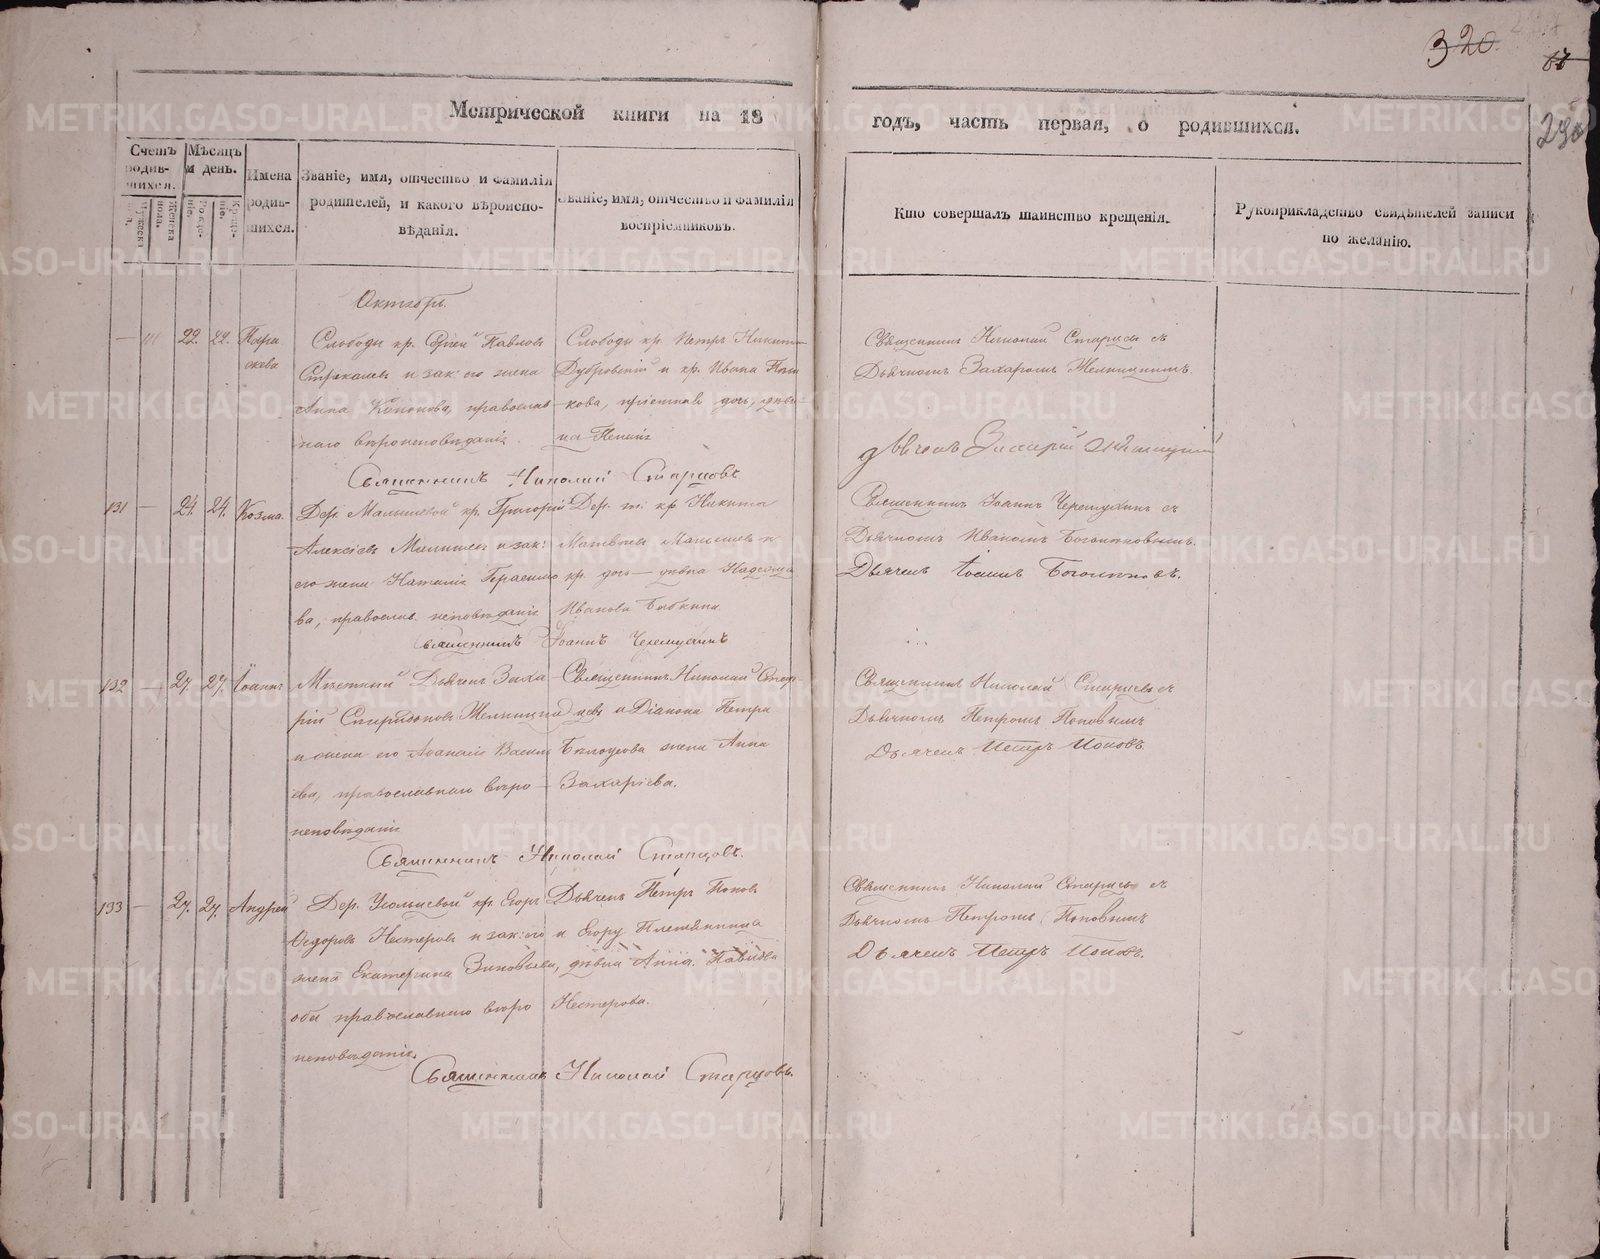 320.
Метрической книги на 18 годъ, часть первая, о родившихся.
290
Счетъ родив-шихся.
Мужеска пола.
Женска пола.
Мѣсяцъ и день.
Рожде-нія.
Креще-нія.
Имена родив-шихся.
Званіе, имя, отчество и фамилія
родителей, и какого вѣроиспо-
вѣданія.
Званіе, имя, отчество и фамилія
воспріемниковъ.
Кто совершалъ таинство крещенія.
Рукоприкладство свидѣтелей записи
по желанію.
Октябрь.
22. 22. Пара
скева
Слободы кр. Павловъ
и зак: его жена
Анна Кононова, православ-
наго вѣроисповѣданія.
Слободы кр. Петръ Никитинъ
Дубровскій и кр. Ивана
дочь, дѣви-
ца
Священникъ Николай Старцовъ съ
Дьячкомъ Захаромъ
Священникъ Николай Старцовъ
131 — 24. 24. Козма.
Дер. Малышевой кр. Григорій
Алексіевъ Малышевъ и зак:
его жена Наталія Герасимо
ва, православ. исповѣданія.
Дер. т. кр. Никита
Матвѣевъ Малышевъ и
кр. дочь — дѣвка Надежда
Иванова Бабкина
Священникъ Іоаннъ Черемухинъ съ
Дьячкомъ Иваномъ Богомоловымъ.
Дьячекъ Іоаннъ
Священникъ Іоаннъ Черемухинъ
132 — 27. 27. Іоаннъ
Мѣстный Дьячекъ Заха
рій Спиридоновъ
и жена его Аѳанасія Василь
ева, православнаго вѣро
исповѣданія
Священникъ Николай Стар-
цевъ и Діакона Петра
Бѣлоусова жена Анна
Захаріева.
Священникъ Николай Старцовъ съ
Дьячкомъ Петромъ Поповымъ
Дьячекъ Петръ Поповъ.
Священникъ Николай Старцовъ.
133 — 27. 27. Андрей
Дер. кр. Егоръ
Ѳедоровъ Нестеровъ и зак: его
жена Екатерина Зиновьева,
оба православнаго вѣро
исповѣданія.
Дьячекъ Петръ Поповъ
и Егору Племянница
дѣвка Анна
Нестерова.
Священникъ Николай Старцовъ съ
Дьячкомъ Петромъ Поповымъ
Дьячекъ Петръ Поповъ.
Священникъ Николай Старцовъ.
METRIKI.GASO-URAL.RU